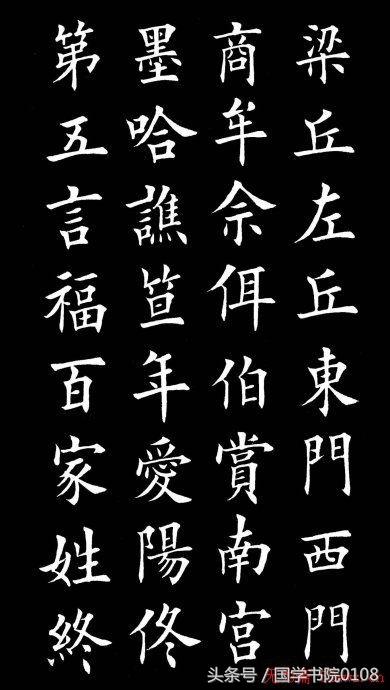 梁丘左丘東門西門
商牟佘佴伯賞南宮
墨哈譙笪年愛陽佟
第五言福百家姓終
头条号 / 国学书院0108